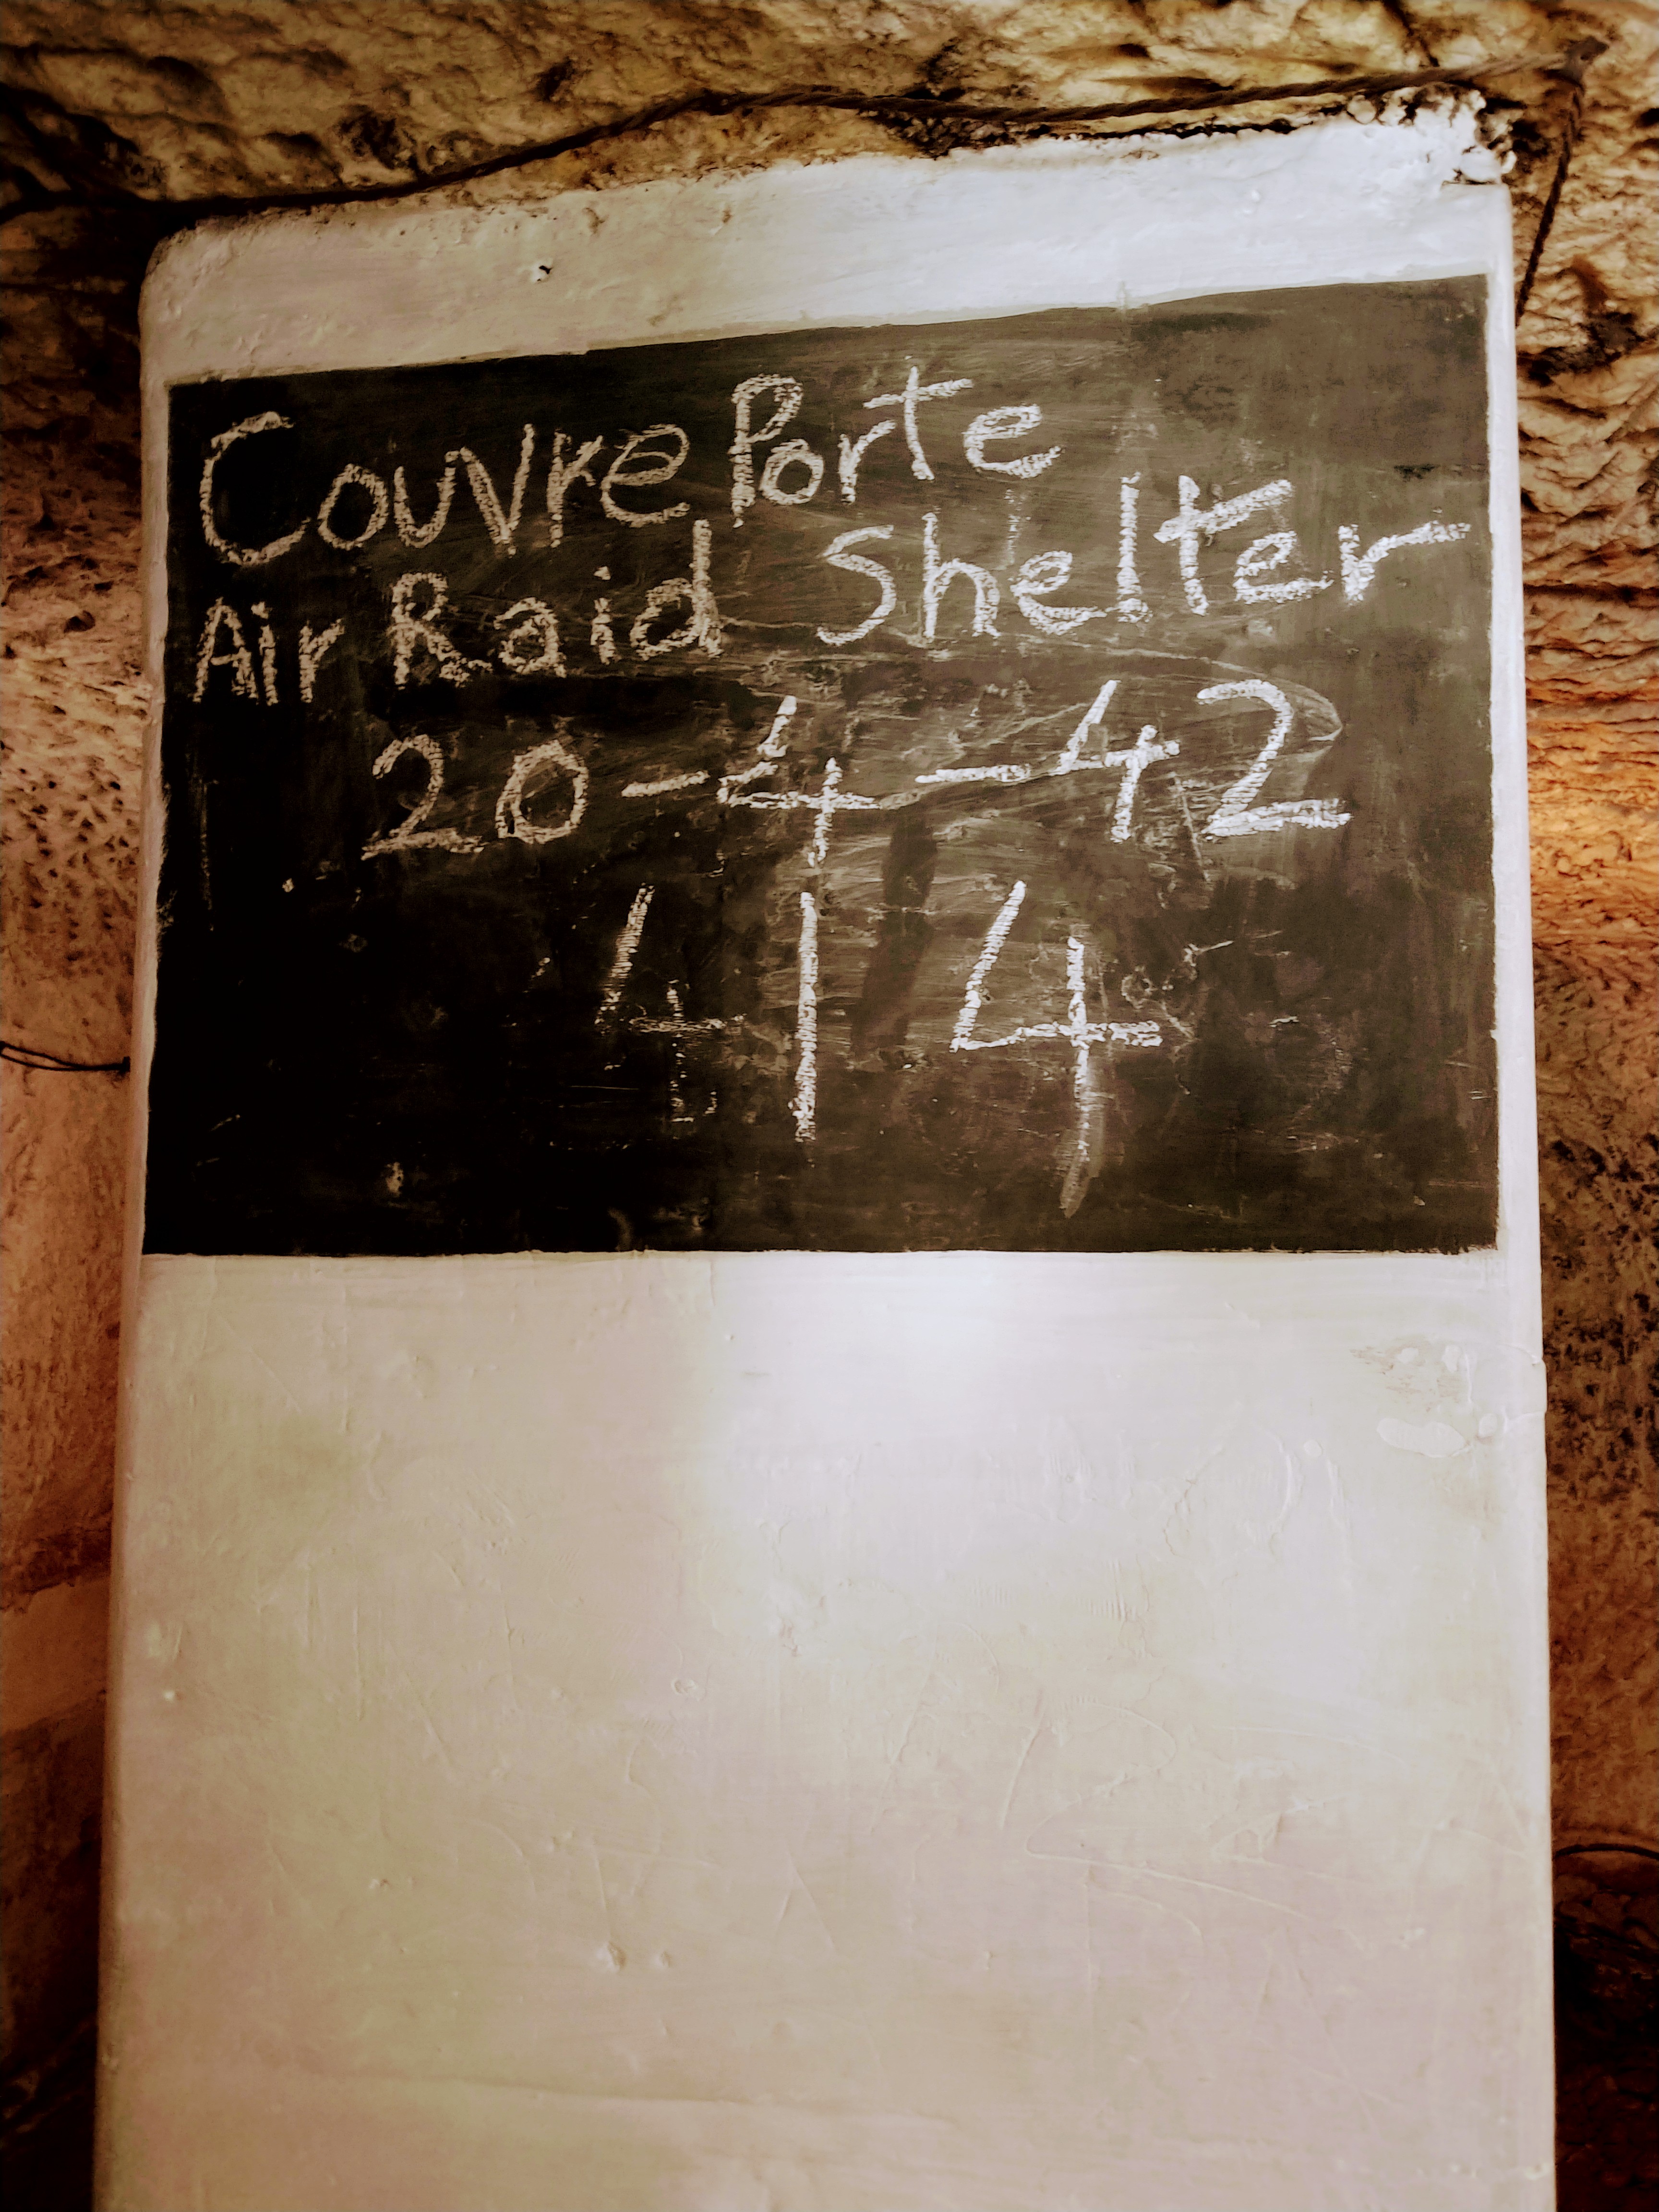 Couvre Porte
Air Raid Shelter
20-4-42
414